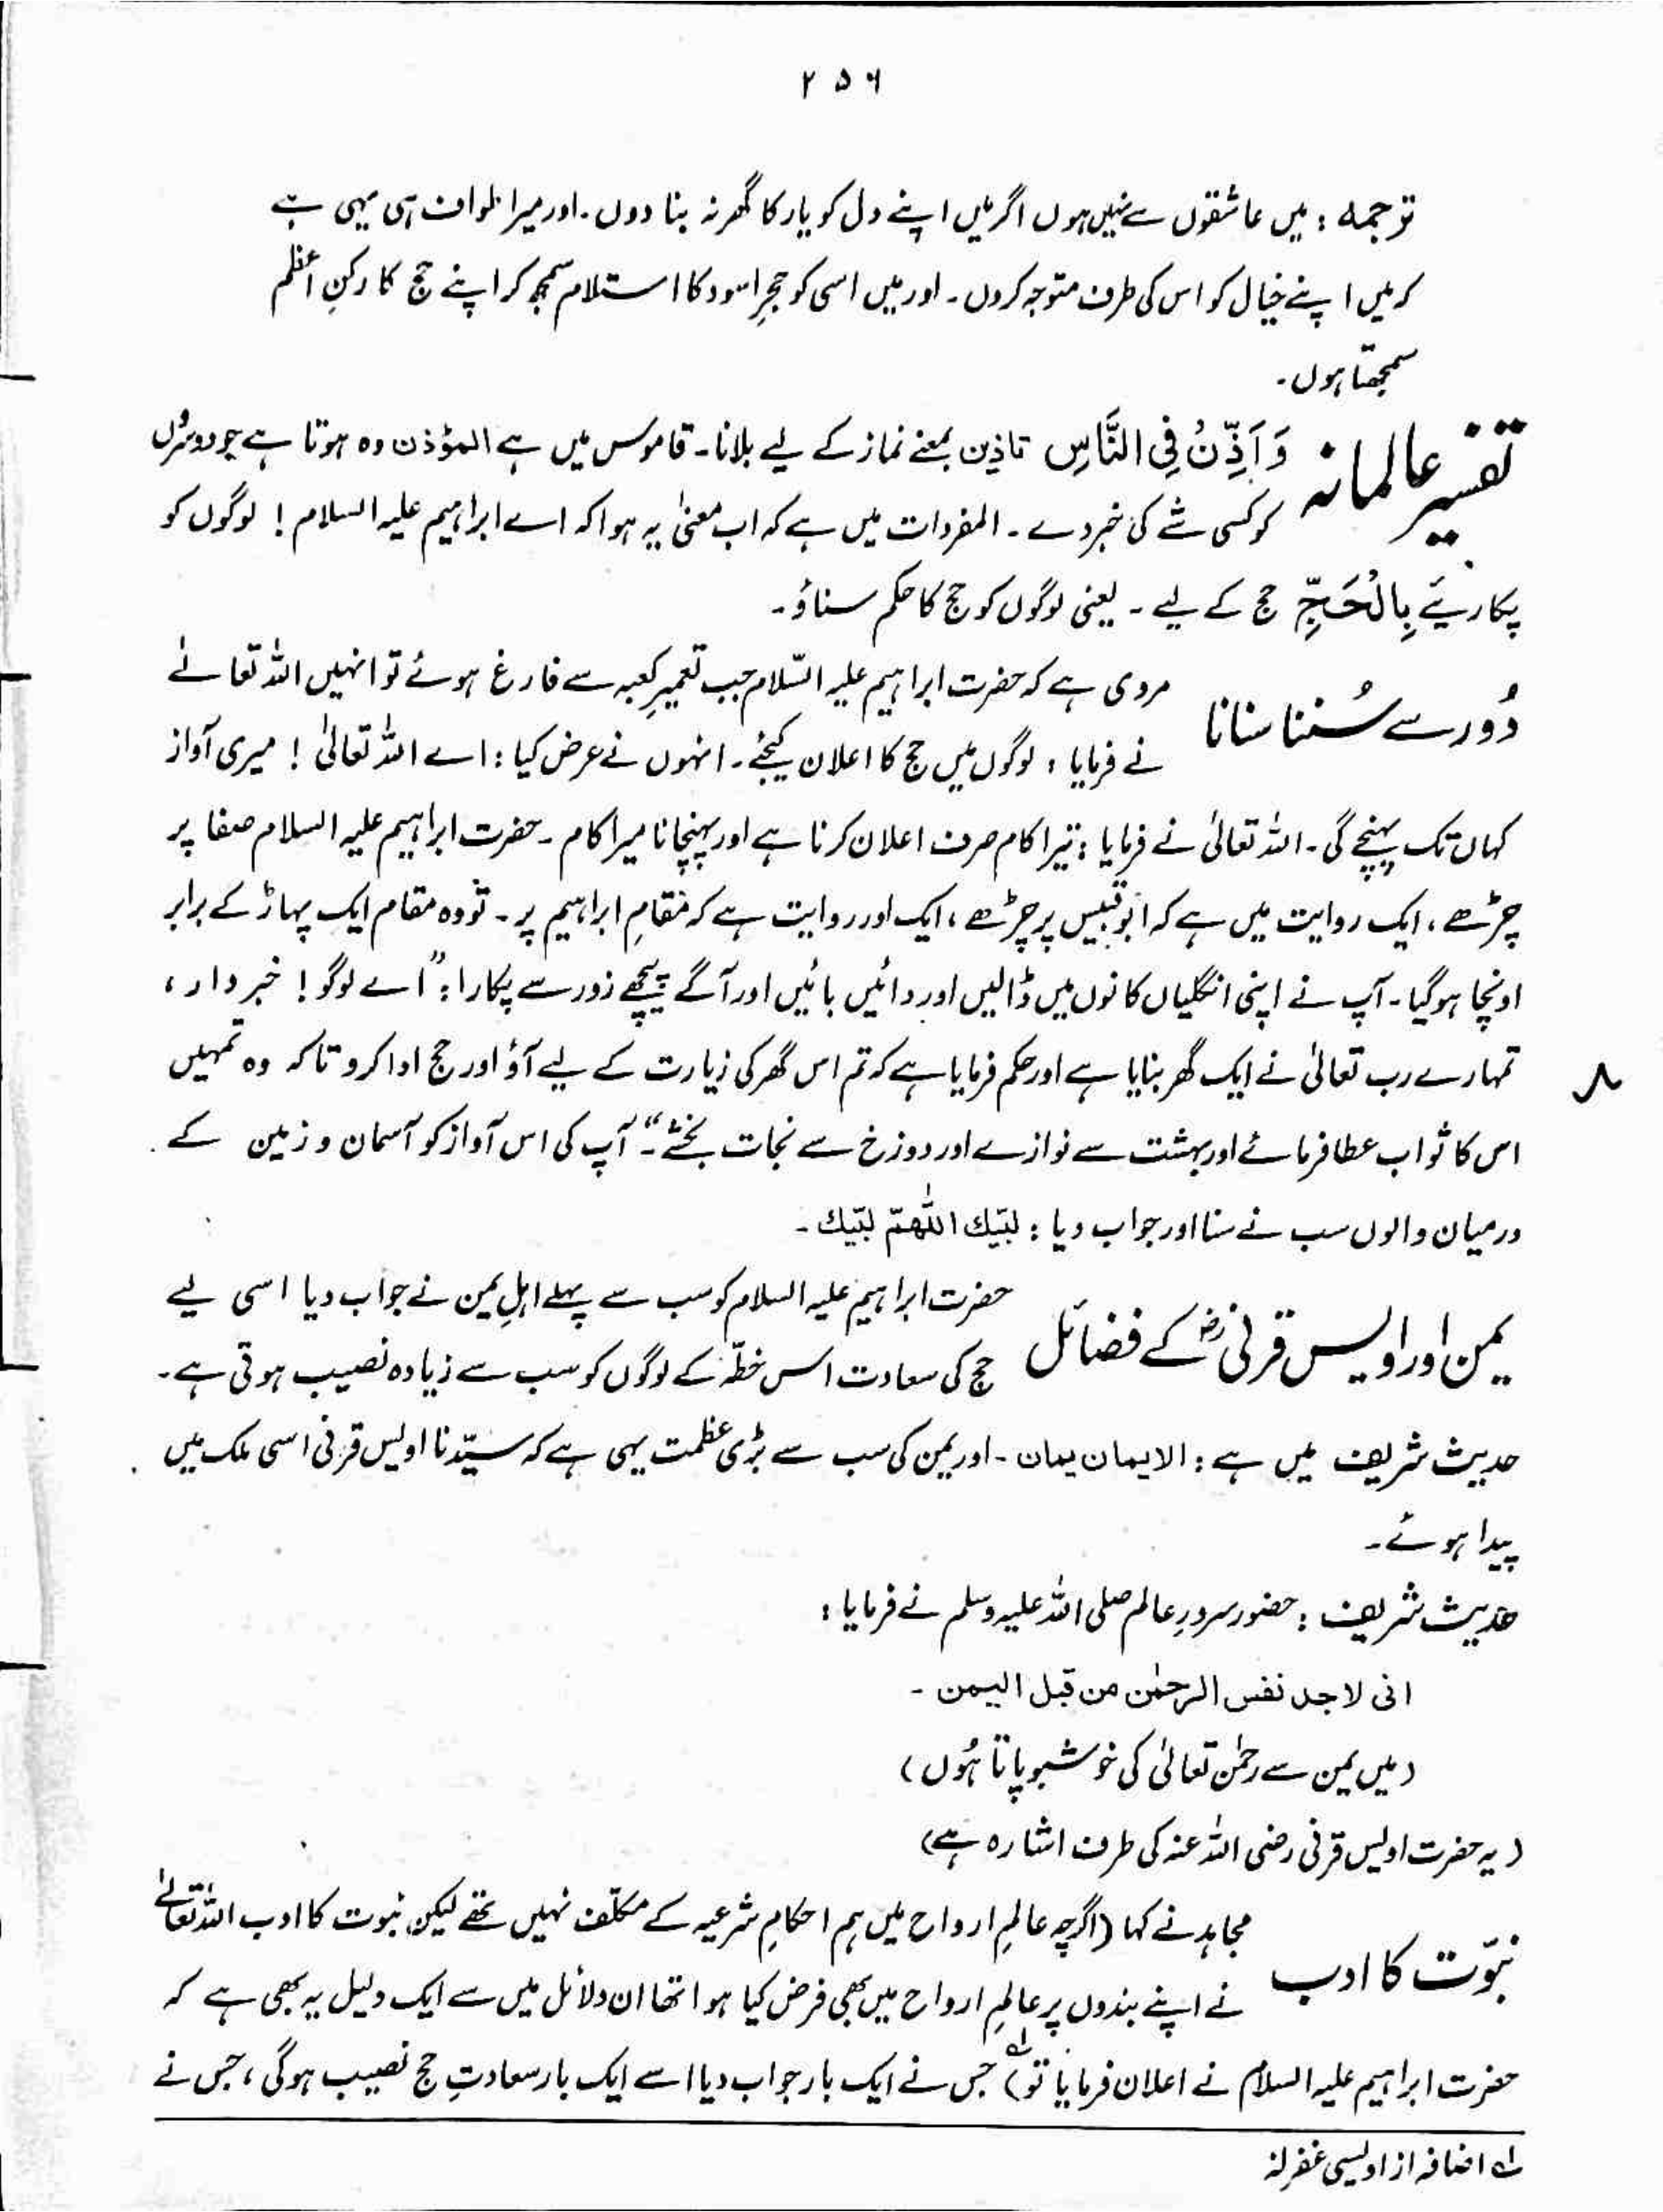 ۲۵۶
ترجمہ : میں عاشقوں سے نہیں ہوں اگر میں اپنے دل کو یار کا گھر نہ بنا دوں ۔ اور میرا طواف ہی یہی ہے
کہ میں اپنے خیال کو اس کی طرف متوجہ کروں ۔ اور میں اسی کو حجرِ اسود کا استلام سمجھ کر اپنے حج کا رکنِ اعظم
سمجھتا ہوں ۔
تفسیر عالمانہ وَاَذِّنْ فِی النَّاسِ تاذین بمعنے نماز کے لیے بلانا ۔ قاموس میں ہے المؤذن وہ ہوتا ہے جو دوسروں
کو کسی شے کی خبر دے ۔ المفردات میں ہے کہ اب معنیٰ یہ ہوا کہ اے ابراہیم علیہ السلام ! لوگوں کو
پکاریئے بِالْحَجِّ حج کے لیے ۔ یعنی لوگوں کو حج کا حکم سناؤ ۔
دُور سے سُننا سنانا مروی ہے کہ حضرت ابراہیم علیہ السّلام جب تعمیرِ کعبہ سے فارغ ہوئے تو انہیں اللہ تعالے
نے فرمایا : لوگوں میں حج کا اعلان کیجئے ۔ انہوں نے عرض کیا : اے اللہ تعالیٰ ! میری آواز
کہاں تک پہنچے گی ۔ اللہ تعالیٰ نے فرمایا : تیرا کام صرف اعلان کرنا ہے اور پہنچانا میرا کام ۔ حضرت ابراہیم علیہ السلام صفا پر
چڑھے ، ایک روایت میں ہے کہ ابوقبیس پر چڑھے ، ایک اور روایت ہے کہ مقامِ ابراہیم پر ۔ تو وہ مقام ایک پہاڑ کے برابر
اونچا ہوگیا ۔ آپ نے اپنی انگلیاں کانوں میں ڈالیں اور دائیں بائیں اور آگے پیچھے زور سے پکارا : ”اے لوگو ! خبردار ،
تمہارے رب تعالیٰ نے ایک گھر بنایا ہے اور حکم فرمایا ہے کہ تم اس گھر کی زیارت کے لیے آؤ اور حج ادا کرو تاکہ وہ تمہیں
اس کا ثواب عطا فرمائے اور بہشت سے نوازے اور دوزخ سے نجات بخشے ۔“ آپ کی اس آواز کو آسمان و زمین کے
درمیان والوں سب نے سنا اور جواب دیا : لبّیك اللّٰھمّ لبّیك ۔
یمن اور اویس قرنی رضؓ کے فضائل حضرت ابراہیم علیہ السلام کو سب سے پہلے اہلِ یمن نے جواب دیا اسی لیے
حج کی سعادت اس خطّہ کے لوگوں کو سب سے زیادہ نصیب ہوتی ہے ۔
حدیث شریف میں ہے : الایمان یمان ۔ اور یمن کی سب سے بڑی عظمت یہی ہے کہ سیّدنا اویس قرنی اسی ملک میں
پیدا ہوئے ۔
حدیث شریف : حضور سرورِ عالم صلی اللہ علیہ وسلم نے فرمایا :
انی لاجد نفس الرحمٰن من قبل الیمن ۔
(میں یمن سے رحمٰن تعالیٰ کی خوشبو پاتا ہُوں)
(یہ حضرت اویس قرنی رضی اللہ عنہ کی طرف اشارہ ہے)
نبوّت کا ادب مجاہد نے کہا (اگرچہ عالمِ ارواح میں ہم احکامِ شرعیہ کے مکلّف نہیں تھے لیکن نبوت کا ادب اللہ تعالےٰ
نے اپنے بندوں پر عالمِ ارواح میں بھی فرض کیا ہوا تھا ان دلائل میں سے ایک دلیل یہ بھی ہے کہ
حضرت ابراہیم علیہ السلام نے اعلان فرمایا تو) لہ جس نے ایک بار جواب دیا اسے ایک بار سعادتِ حج نصیب ہوگی ، جس نے
لہ اضافہ از اویسی غفرلہٗ